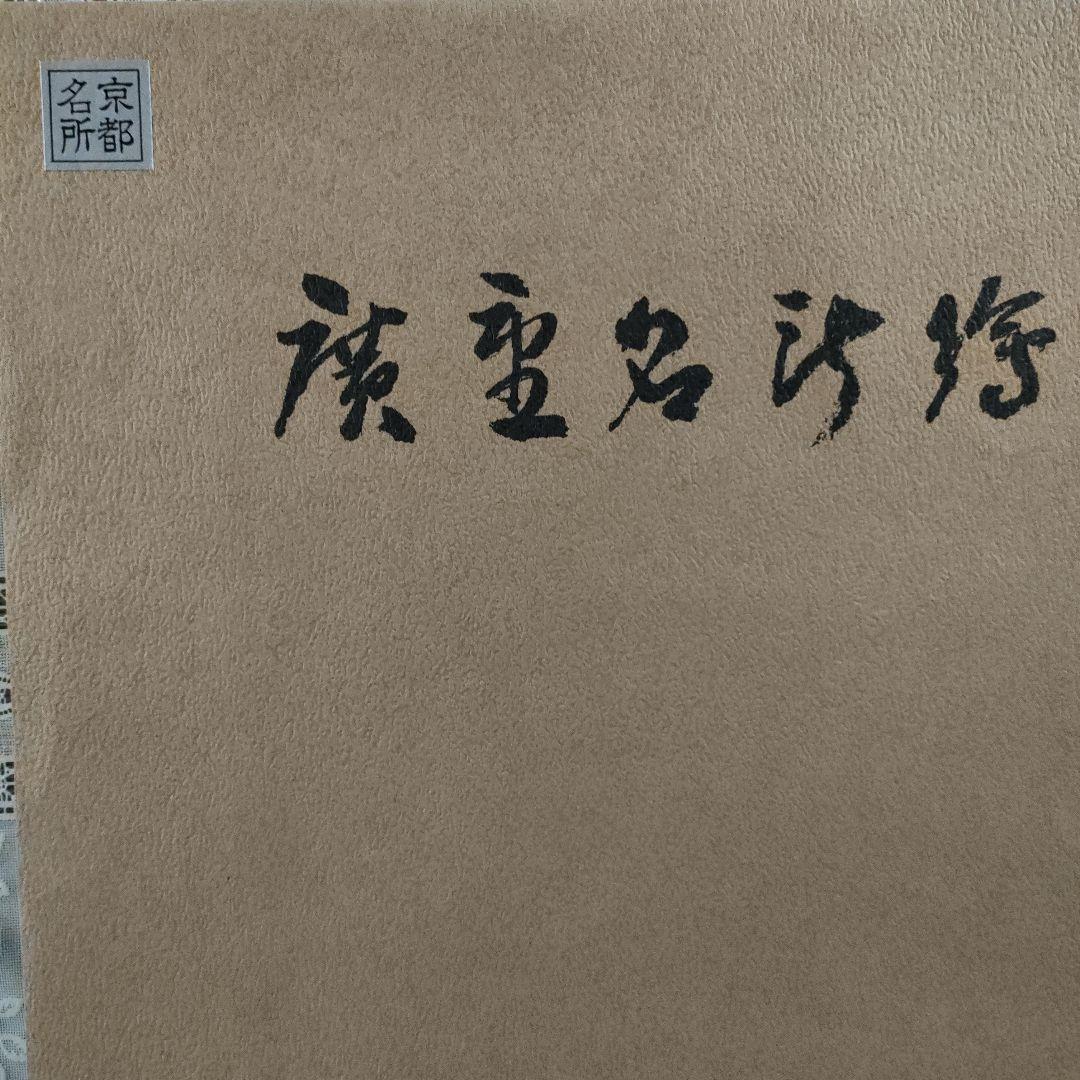 京都
名所
廣重名所繪